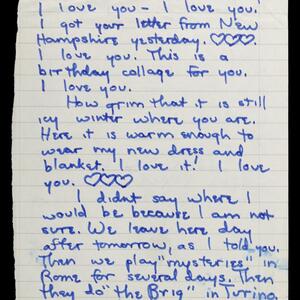 I love you - I love you.
I got your letter from New
Hampshire yesterday. ♡♡♡.
I love you. This is a
birthday collage for you.
I love you.
How grim that it is still
icy winter where you are.
Here it is warm enough to
wear my new dress and
blanket. I love it! I love
you. ♡♡♡
I didnt say where I
would be because I am not
sure. We leave here day
after tomorrow, as I told you.
Then we play "mysteries" in
Rome for several days. Then
they do "the Brig" in Turino.